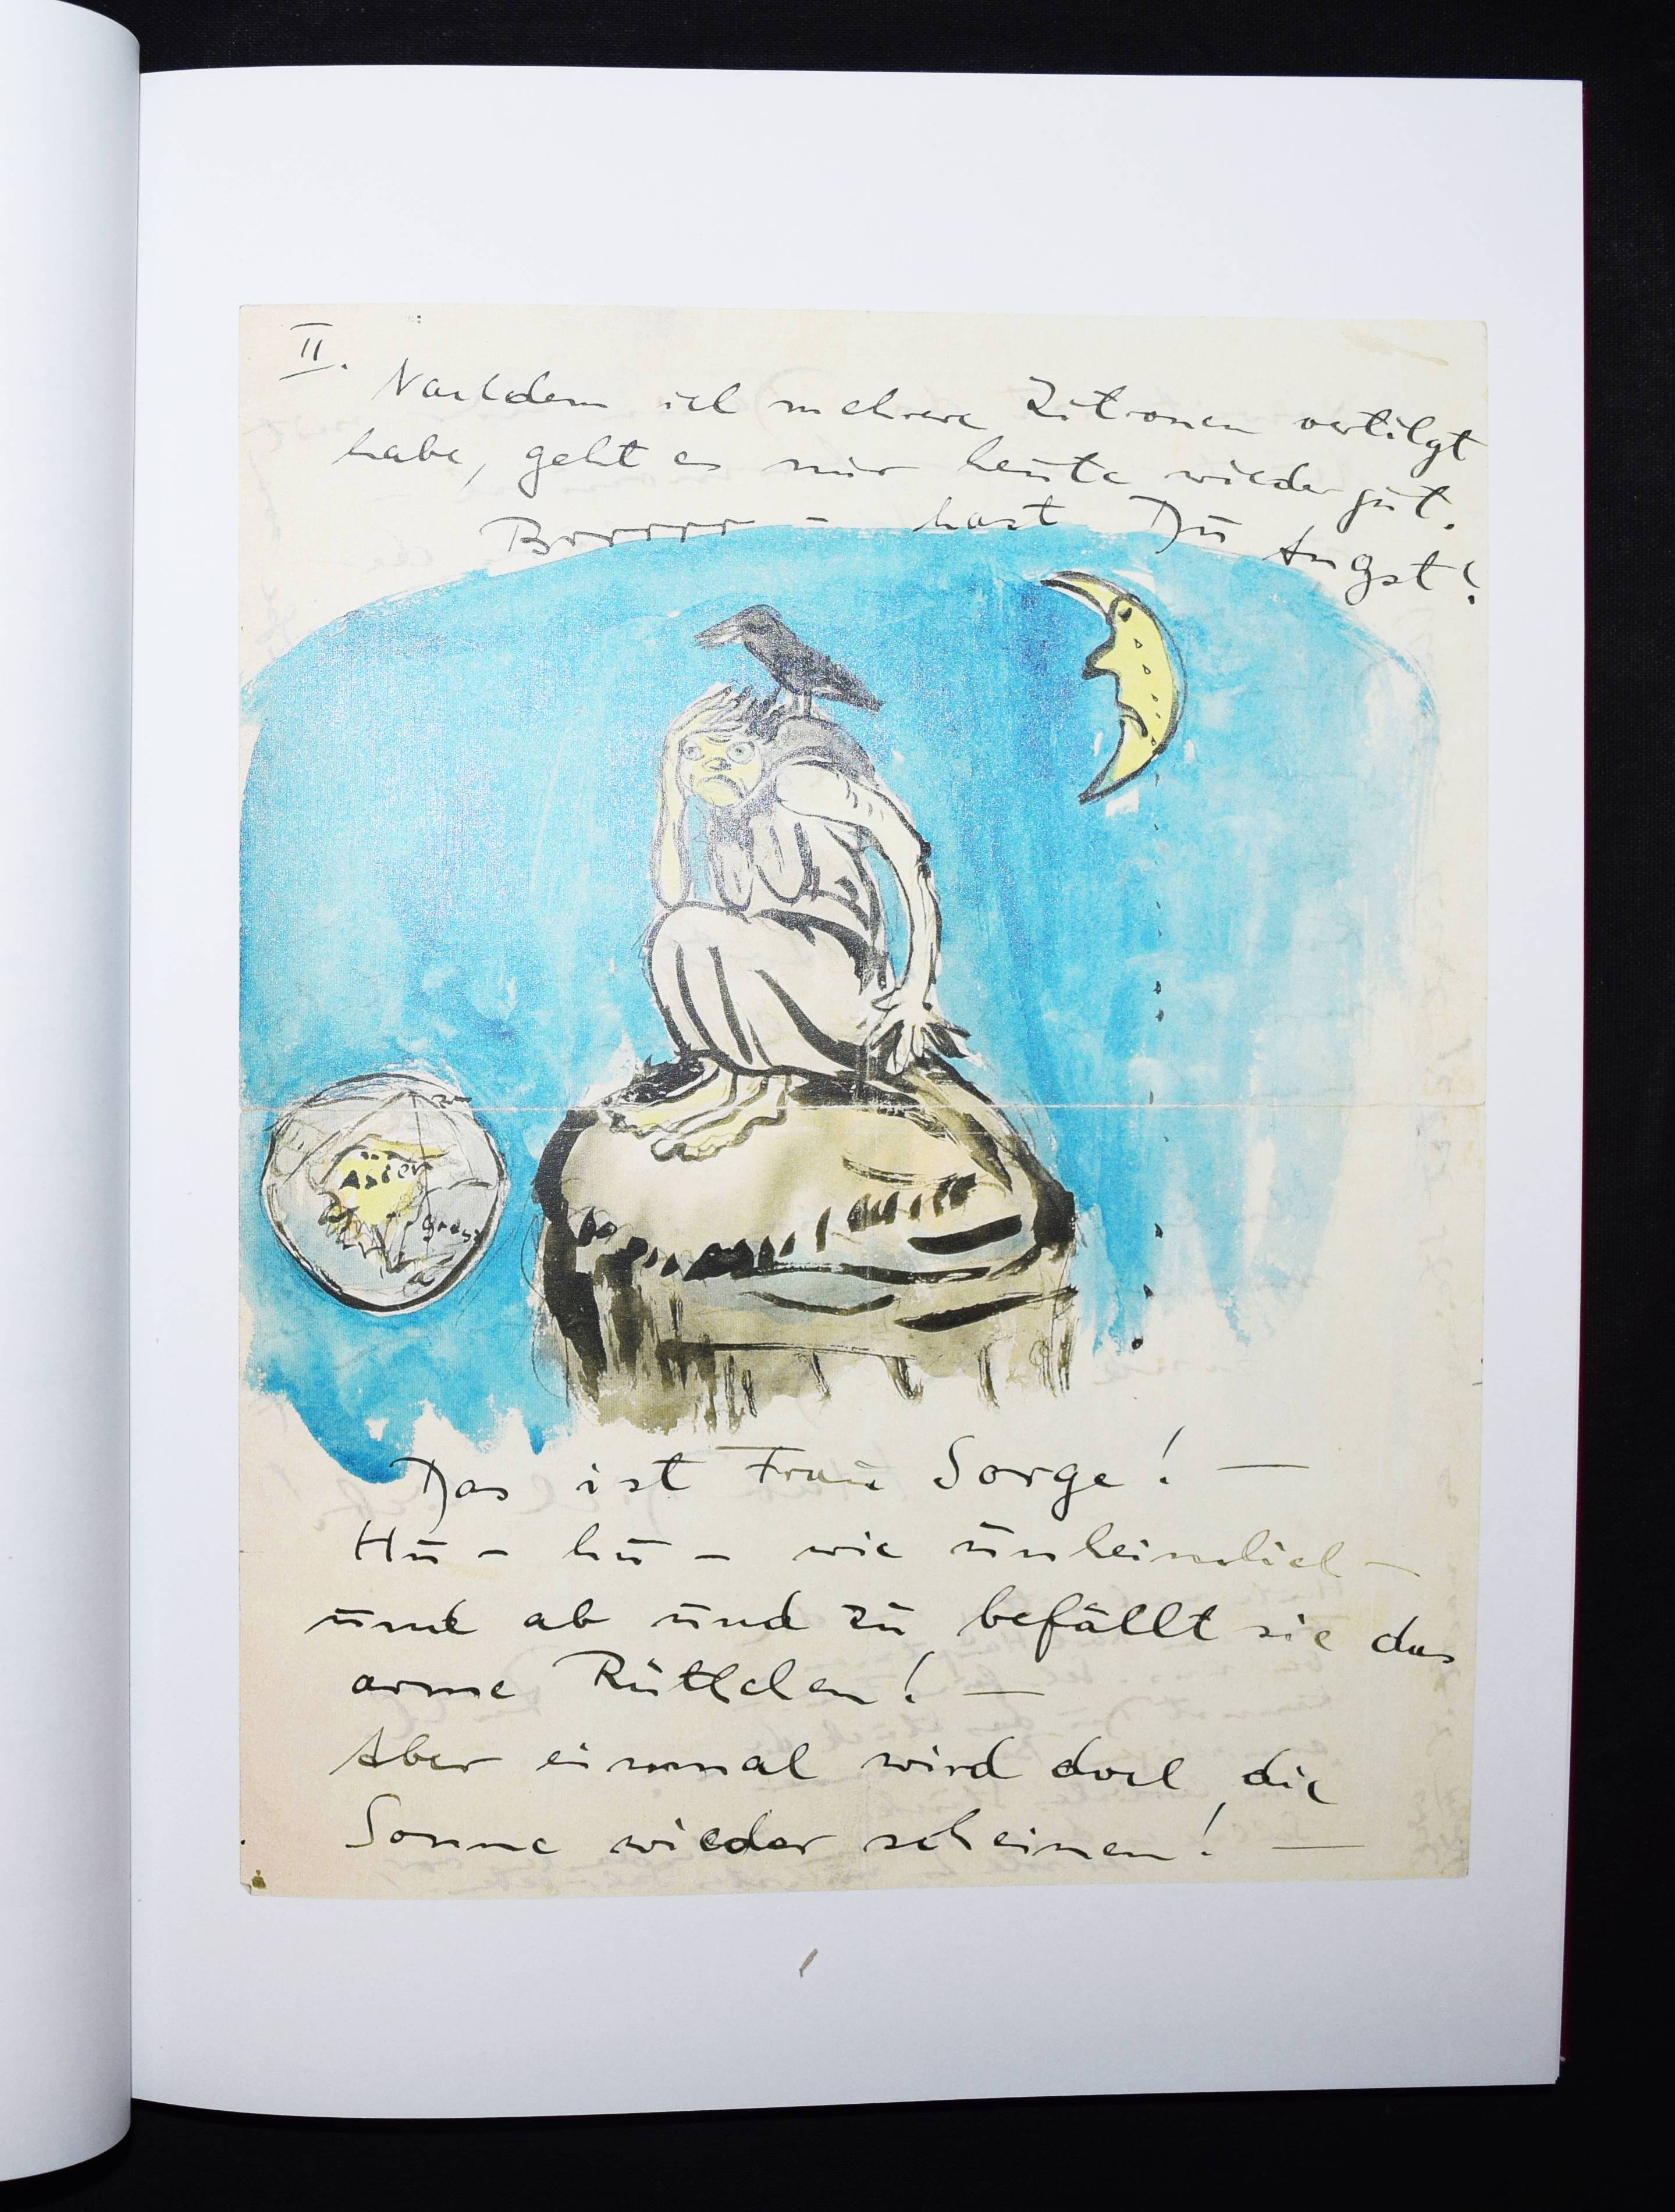 II.
Nachdem ich mehrere Zitronen vertilgt
habe, geht es mir heute wieder gut.
Brrrrr – hast Du Angst!
Asien
Das ist Frau Sorge! —
Hu – hu – wie unheimlich –
und ab und zu befällt sie das
arme Rüthchen! —
Aber einmal wird doch die
Sonne wieder scheinen! —